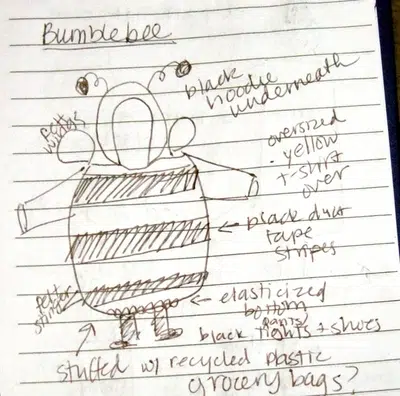 Bumblebee
black
hoodie
underneath
felt
wings
oversized
yellow
t-shirt
over
black duct
tape
stripes
felt
elasticized
bottom
pants
black tights + shoes
stuffed w/ recycled plastic
grocery bags?